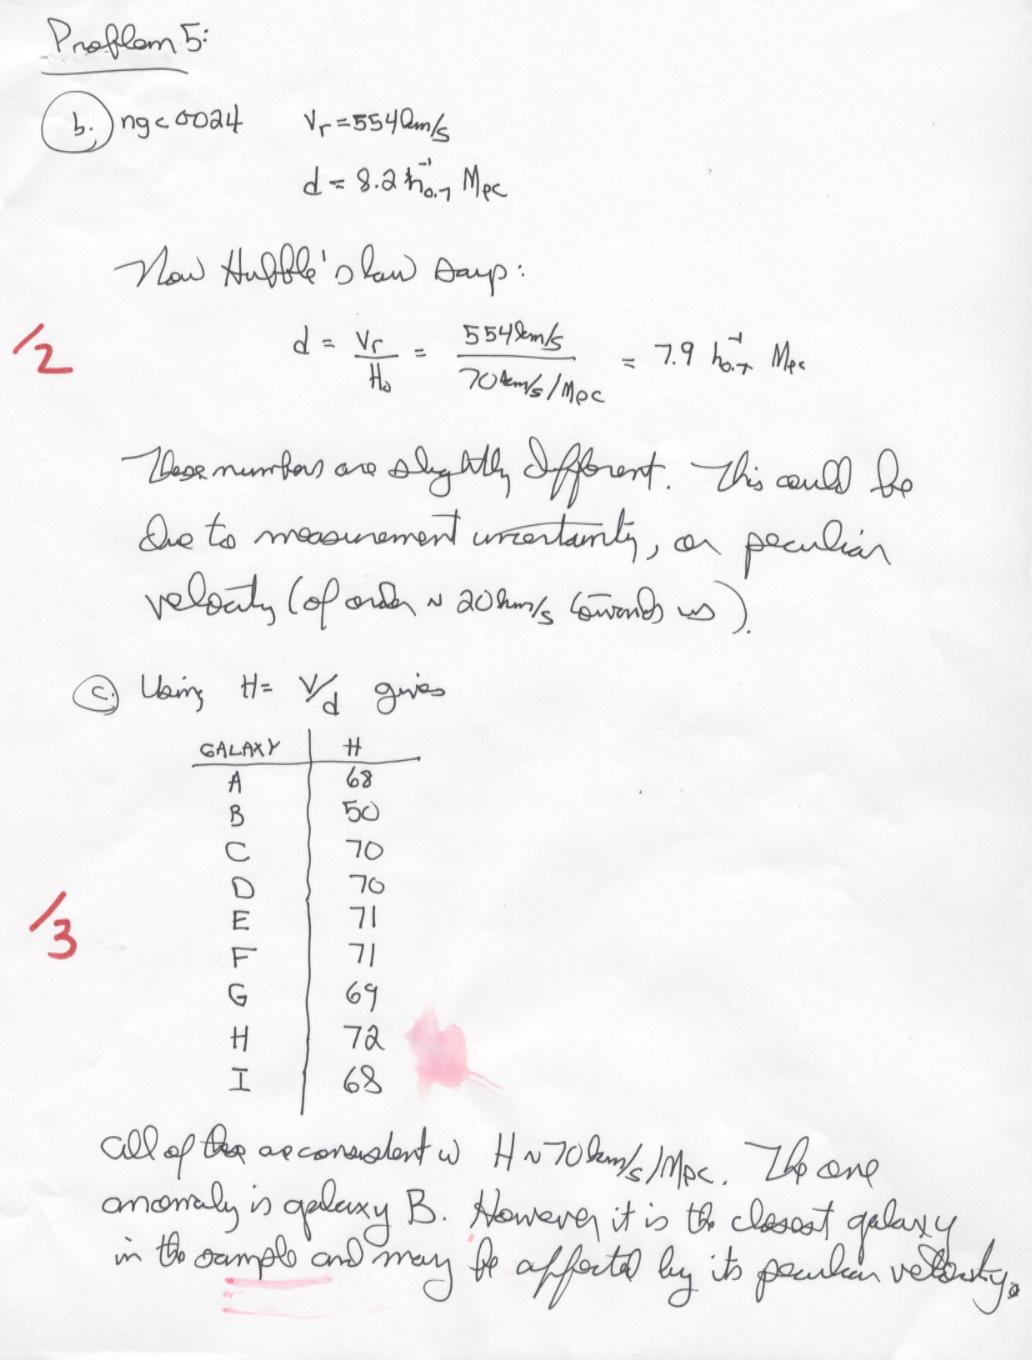 Problem 5:
b. ngc0024 Vr = 554 km/s
d = 8.2 h₀.₇⁻¹ Mpc
Now Hubble's law says:
/2
d = Vr/H₀ = 554 km/s / 70 km/s/Mpc = 7.9 h₀.₇⁻¹ Mpc
These numbers are slightly different. This could be
due to measurement uncertainty, or peculiar
velocity (of order ~ 20 km/s towards us).
c. Using H = V/d gives
GALAXY H
A 68
B 50
C 70
D 70
E 71
/3
F 71
G 69
H 72
I 68
All of these are consistent w H ~ 70 km/s/Mpc. The one
anomaly is galaxy B. However it is the closest galaxy
in the sample and may be affected by its peculiar velocity.